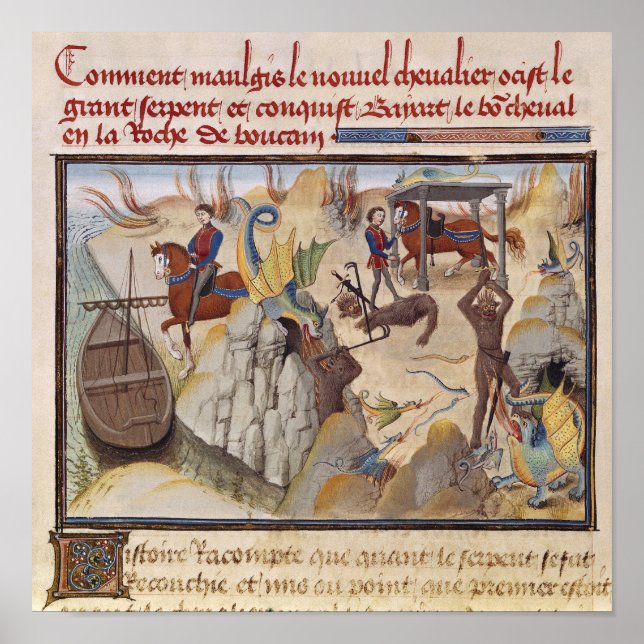 Comment maulgis le nouuel chevalier ocist le
geant serpent et conquist Bayart le bo cheval
en la Roche de boucam
istoire Racompte que quant le serpent se fut
Recouchie et mis ou point que premier estoit